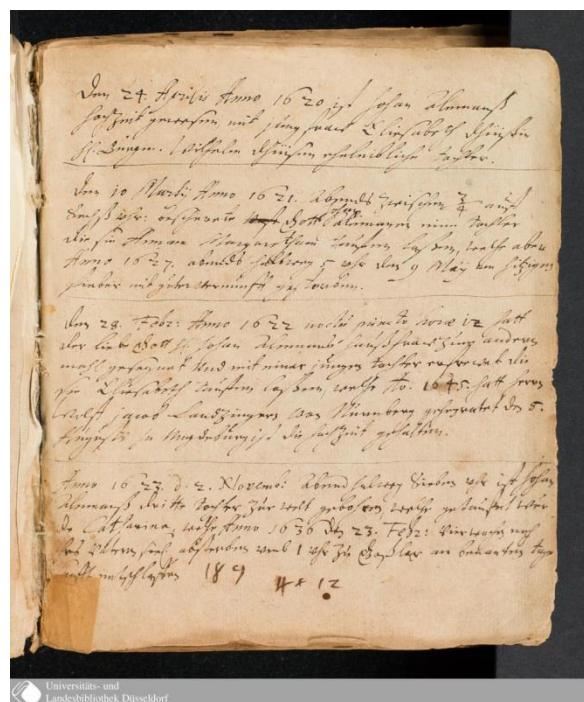 Den 24. Aprilis Anno 1620 ist Johan Alemanß
Hochzeit gewesen, mit Jungfraw Eliesabeth
H. Burgm. Wilhelm eheleibliche Tochter.
Den 10 Martij Anno 1621. Abends zwischen 3/4 auff
Sechß uhr: Gott Alemann eine Tochter
die sie Annam Margaretham tauffen laßen, welche aber
Anno 1627. abends halbweg 5 uhr den 9 Maij am hitzigen
fieber mit guter vernunfft gestorben.
Den 28. Febr: Anno 1622 noctis puncto horæ 12 hatt
der liebe Gott H. Johan Alemanns haußfraw zum andern
mahl gesegnet und mit einer jungen tochter erfrewet die
sie Eliesabeth tauffen laßen, welche Ao. 1645. hatt herrn
Jacob Landzingern von Nürnberg gefreyatet den 5.
Augusti zu Magdeburg ist die hochzeit gehalten.
Anno 1623. d. 2. Novemb: Abend halweg Sieben uhr ist Johan
Alemanß dritte Tochter zur welt gebohren, welche getauffet wor
de Catharina, welche Anno 1636 den 23. Febr: vier wochen nach
des Vatern absterben umb 1 uhr zu Goßlar an tag
sanfft entschlaffen 189
4 * 12
Universitäts- und
Landesbibliothek Düsseldorf